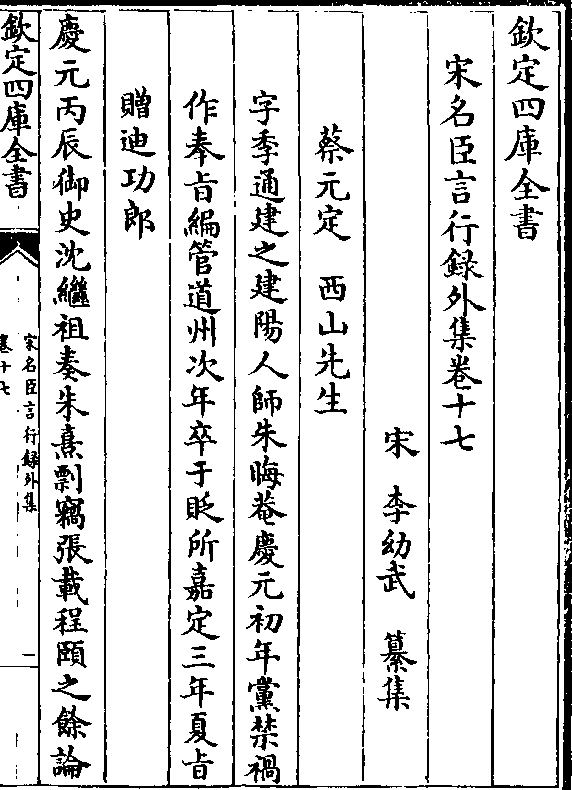 欽定四庫全書
宋名臣言行録外集卷十七
宋 李幼武 纂集
蔡元定 西山先生
字季通建之建陽人師朱晦菴慶元初年黨禁禍
作奉旨編管道州次年卒于貶所嘉定三年夏旨
贈迪功郎
慶元丙辰御史沈繼祖奏朱熹剽竊張載程頤之餘論
欽定四庫全書
宋名臣言行録外集
卷十七
一